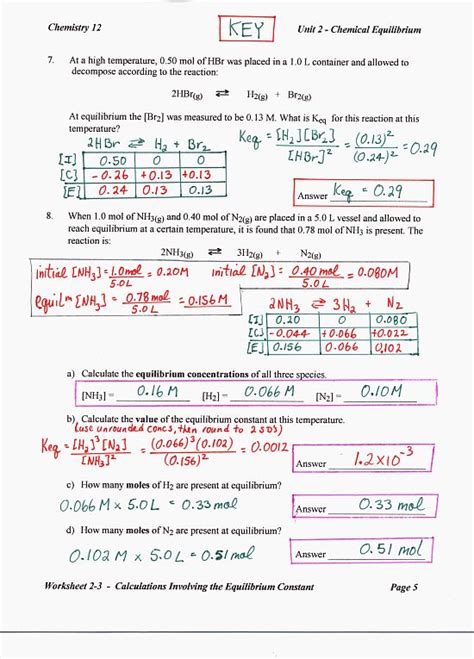 Chemistry 12 KEY Unit 2 - Chemical Equilibrium
7. At a high temperature, 0.50 mol of HBr was placed in a 1.0 L container and allowed to
decompose according to the reaction:
2HBr(g) ⇌ H2(g) + Br2(g)
At equilibrium the [Br2] was measured to be 0.13 M. What is Keq for this reaction at this
temperature?
2HBr ⇌ H2 + Br2
[I] 0.50 0 0
[C] -0.26 +0.13 +0.13
[E] 0.24 0.13 0.13
Keq = [H2][Br2] / [HBr]² = (0.13)² / (0.24)² = 0.29
Answer Keq = 0.29
8. When 1.0 mol of NH3(g) and 0.40 mol of N2(g) are placed in a 5.0 L vessel and allowed to
reach equilibrium at a certain temperature, it is found that 0.78 mol of NH3 is present. The
reaction is:
2NH3(g) ⇌ 3H2(g) + N2(g)
initial [NH3] = 1.0mol / 5.0L = 0.20M initial [N2] = 0.40 mol / 5.0L = 0.080M
equilm [NH3] = 0.78 mol / 5.0L = 0.156M
2NH3 ⇌ 3H2 + N2
[I] 0.20 0 0.080
[C] -0.044 +0.066 +0.022
[E] 0.156 0.066 0.102
a) Calculate the equilibrium concentrations of all three species.
[NH3] = 0.16 M [H2] = 0.066 M [N2] = 0.10M
b) Calculate the value of the equilibrium constant at this temperature.
(use unrounded concs, then round to 2 SD's)
Keq = [H2]³[N2] / [NH3]² = (0.066)³(0.102) / (0.156)² = 0.0012
Answer 1.2x10⁻³
c) How many moles of H2 are present at equilibrium?
0.066 M x 5.0L = 0.33 mol
Answer 0.33 mol
d) How many moles of N2 are present at equilibrium?
0.102 M x 5.0L = 0.51 mol
Answer 0.51 mol
Worksheet 2-3 - Calculations Involving the Equilibrium Constant Page 5